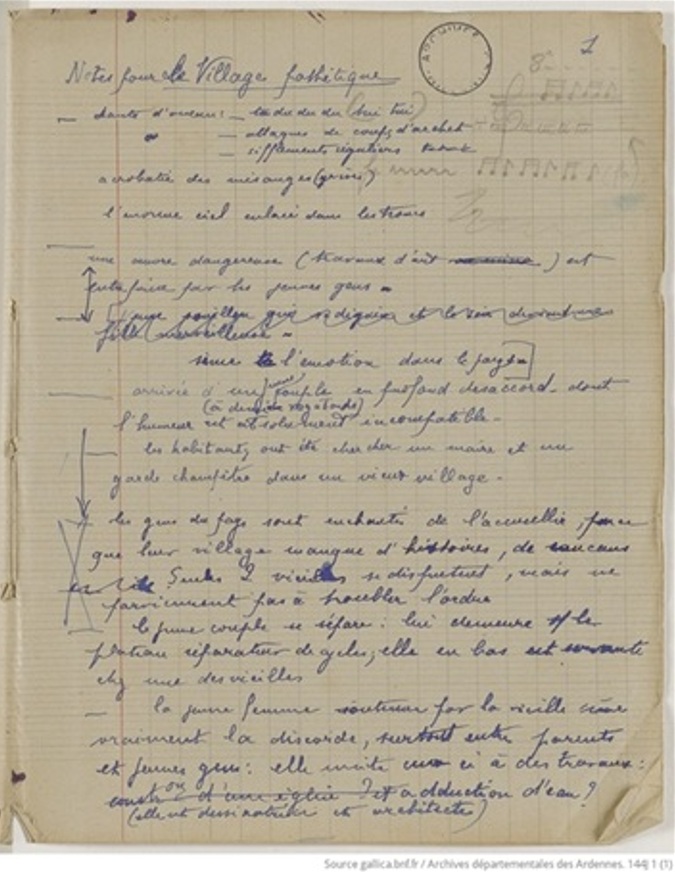 1
8
Notes pour le Village pathétique
— chants d'oiseaux : — tu du du du (hui hui)
— attaques de coups d'archet
— sifflements réguliers
acrobatie des mésanges (grises)
l'énorme ciel enlacé dans les troncs
une œuvre dangereuse (travaux d'art) est
entreprise par les jeunes gens —
fille merveilleuse —
sème l'émotion dans le pays
— arrivée d'un jeune couple en profond désaccord dont
(à demi vagabonds)
l'humeur est absolument incompatible —
— les habitants ont été chercher un maire et un
garde champêtre dans un vieux village —
les gens du pays sont enchantés de l'accueillir, parce
que leur village manque d'histoires, de cancans
Seules 2 vieilles se disputent, mais ne
parviennent pas à troubler l'ordre
— le jeune couple se sépare : lui demeure sur le
plateau réparateur de cycles, elle en bas est servante
chez une des vieilles
— la jeune femme soutenue par la vieille sème
vraiment la discorde, surtout entre parents
et jeunes gens : elle incite ceux ci à des travaux :
constron d'une église ? et adduction d'eau ?
(elle est dessinatrice et architecte)
Source gallica.bnf.fr / Archives départementales des Ardennes. 144J 1 (1)